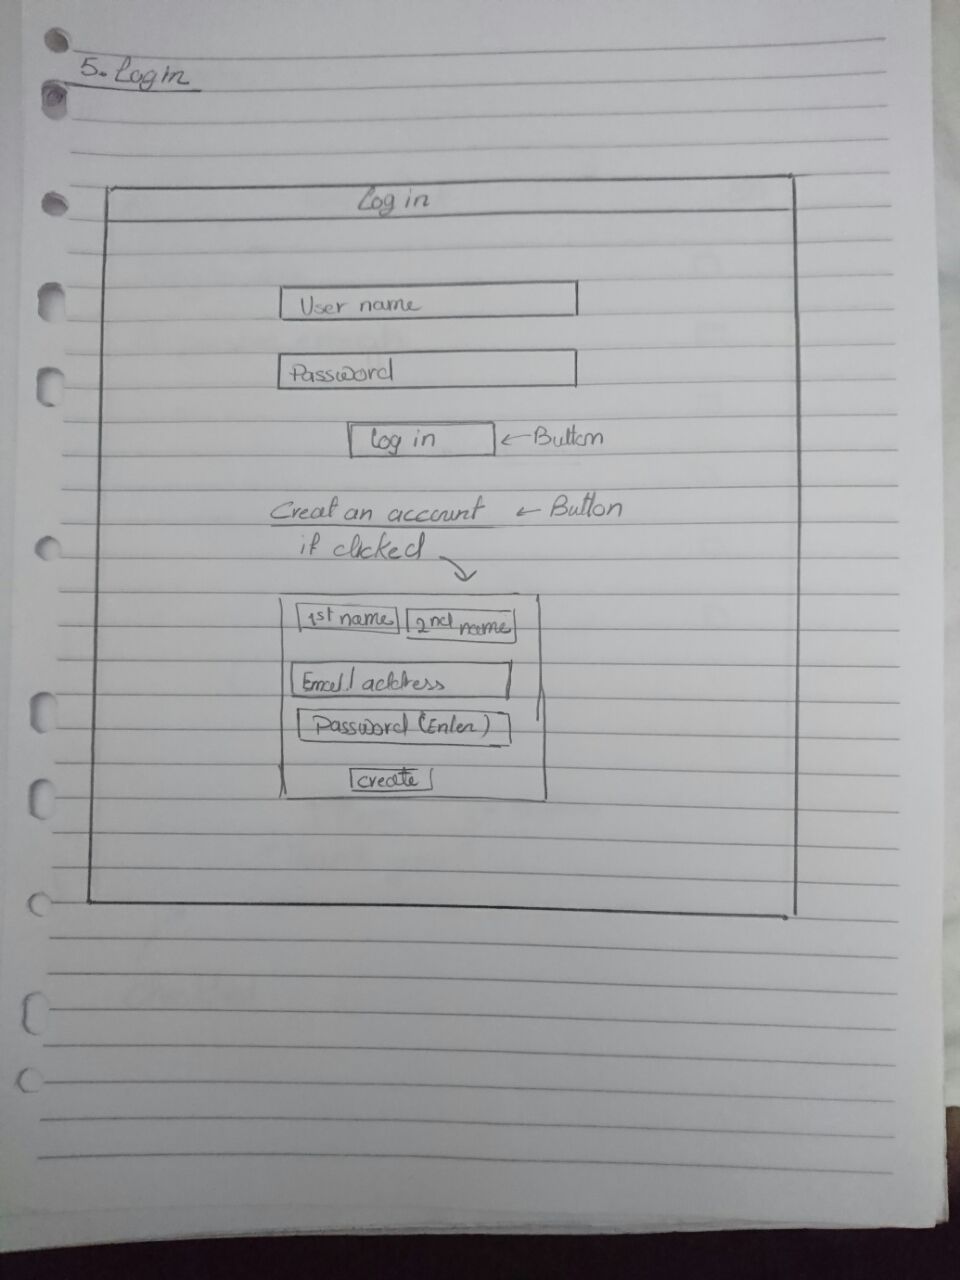 5. Login
Log in
User name
Password
Log in ← Button
Creat an account ← Button
if clicked
1st name 2nd name
Email address
Password (Enter)
create